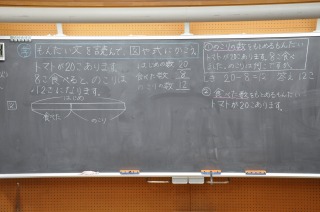 もんだい文を読んで、図や式にかこう
トマトが20こあります。
8こ食べると、のこりは
12こになります。
図
はじめ
食べた
のこり
はじめの数 20
食べた数 8
のこりの数 12
①のこりの数をもとめるもんだい
トマトが20こあります。8こ食べ
ました。のこりは何こですか。
式 20-8=12 答え 12こ
②食べた数をもとめるもんだい
トマトが20こあります。